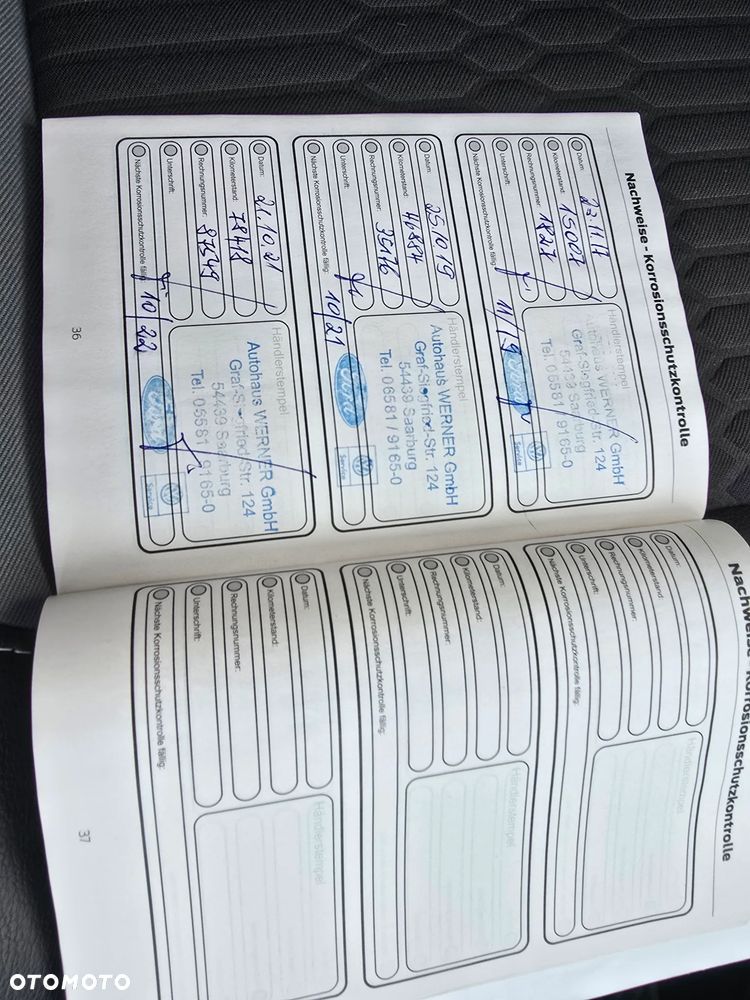 Nachweise - Korrosionsschutzkontrolle
Datum: 22.11.17
Kilometerstand: 15007
Rechnungsnummer: 1827
Unterschrift:
Nächste Korrosionsschutzkontrolle fällig: 11/19
Händlerstempel
Autohaus WERNER GmbH
Graf-Siegfried-Str. 124
54439 Saarburg
Tel. 06581 / 9165-0
Service
Datum: 25.10.19
Kilometerstand: 46854
Rechnungsnummer: 35176
Unterschrift:
Nächste Korrosionsschutzkontrolle fällig: 10/21
Händlerstempel
Autohaus WERNER GmbH
Graf-Siegfried-Str. 124
54439 Saarburg
Tel. 06581 / 9165-0
Service
Datum: 21.10.21
Kilometerstand: 78418
Rechnungsnummer: 87549
Unterschrift:
Nächste Korrosionsschutzkontrolle fällig: 10/22
Händlerstempel
Autohaus WERNER GmbH
Graf-Siegfried-Str. 124
54439 Saarburg
Tel. 06581 / 9165-0
Service
36
Nachweise - Korrosionsschutzkontrolle
Datum:
Kilometerstand:
Rechnungsnummer:
Unterschrift:
Nächste Korrosionsschutzkontrolle fällig:
Händlerstempel
Datum:
Kilometerstand:
Rechnungsnummer:
Unterschrift:
Nächste Korrosionsschutzkontrolle fällig:
Händlerstempel
Datum:
Kilometerstand:
Rechnungsnummer:
Unterschrift:
Nächste Korrosionsschutzkontrolle fällig:
Händlerstempel
37
OTOMOTO